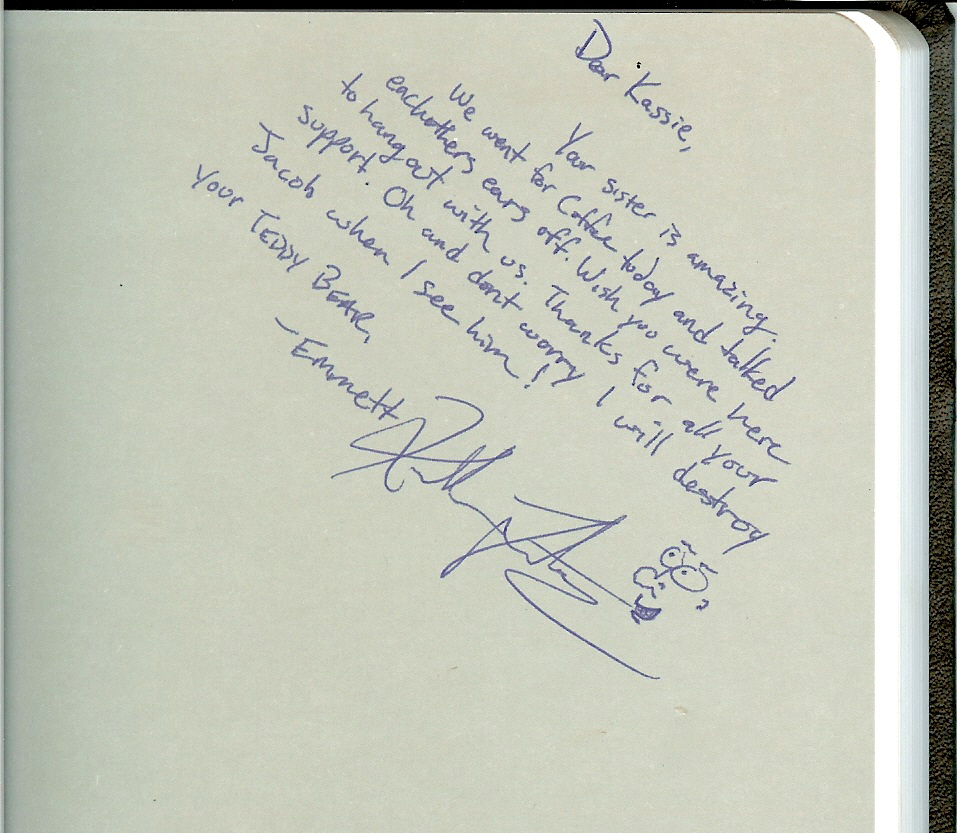 Dear Kassie,
Your sister is amazing.
We went for Coffee today and talked
eachothers ears off. Wish you were here
to hang out with us. Thanks for all your
support. Oh and dont worry I will destroy
Jacob when I see him!
Your TEDDY BEAR,
~Emmett